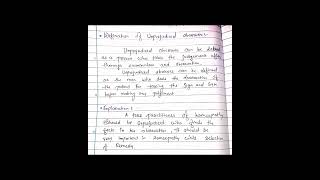 • Defination of Unprejudiced observer:-
Unprejudiced observer can be defined
as a person who takes the judgement after
through examination and observation.
Unprejudiced observer can be defined
as the man who does the observation of
the patient for taking the sign and symp
before making any judgement.
• Explanation:
A true practitioners of homoeopathy
should be unprejudiced who finds the
facts in his observation, It should be
very important in homoeopathy while selection
of Remedy.